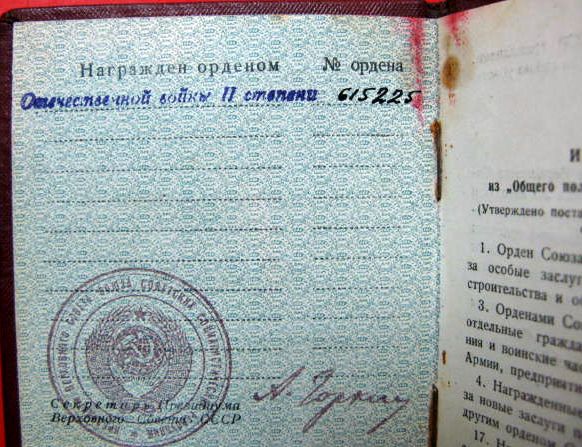 Награжден орденом № ордена
Отечественной войны II степени 615225
Секретарь Президиума
Верховного Совета СССР
А. Горкин
И
из „Общего пол
(Утверждено поста
1. Орден Союза
за особые заслуг
строительства и о
3. Орденами Со
отдельные гражда
ния и воинские час
Армии, предприят
4. Награжденны
за новые заслуги
другим орденом
17. Н